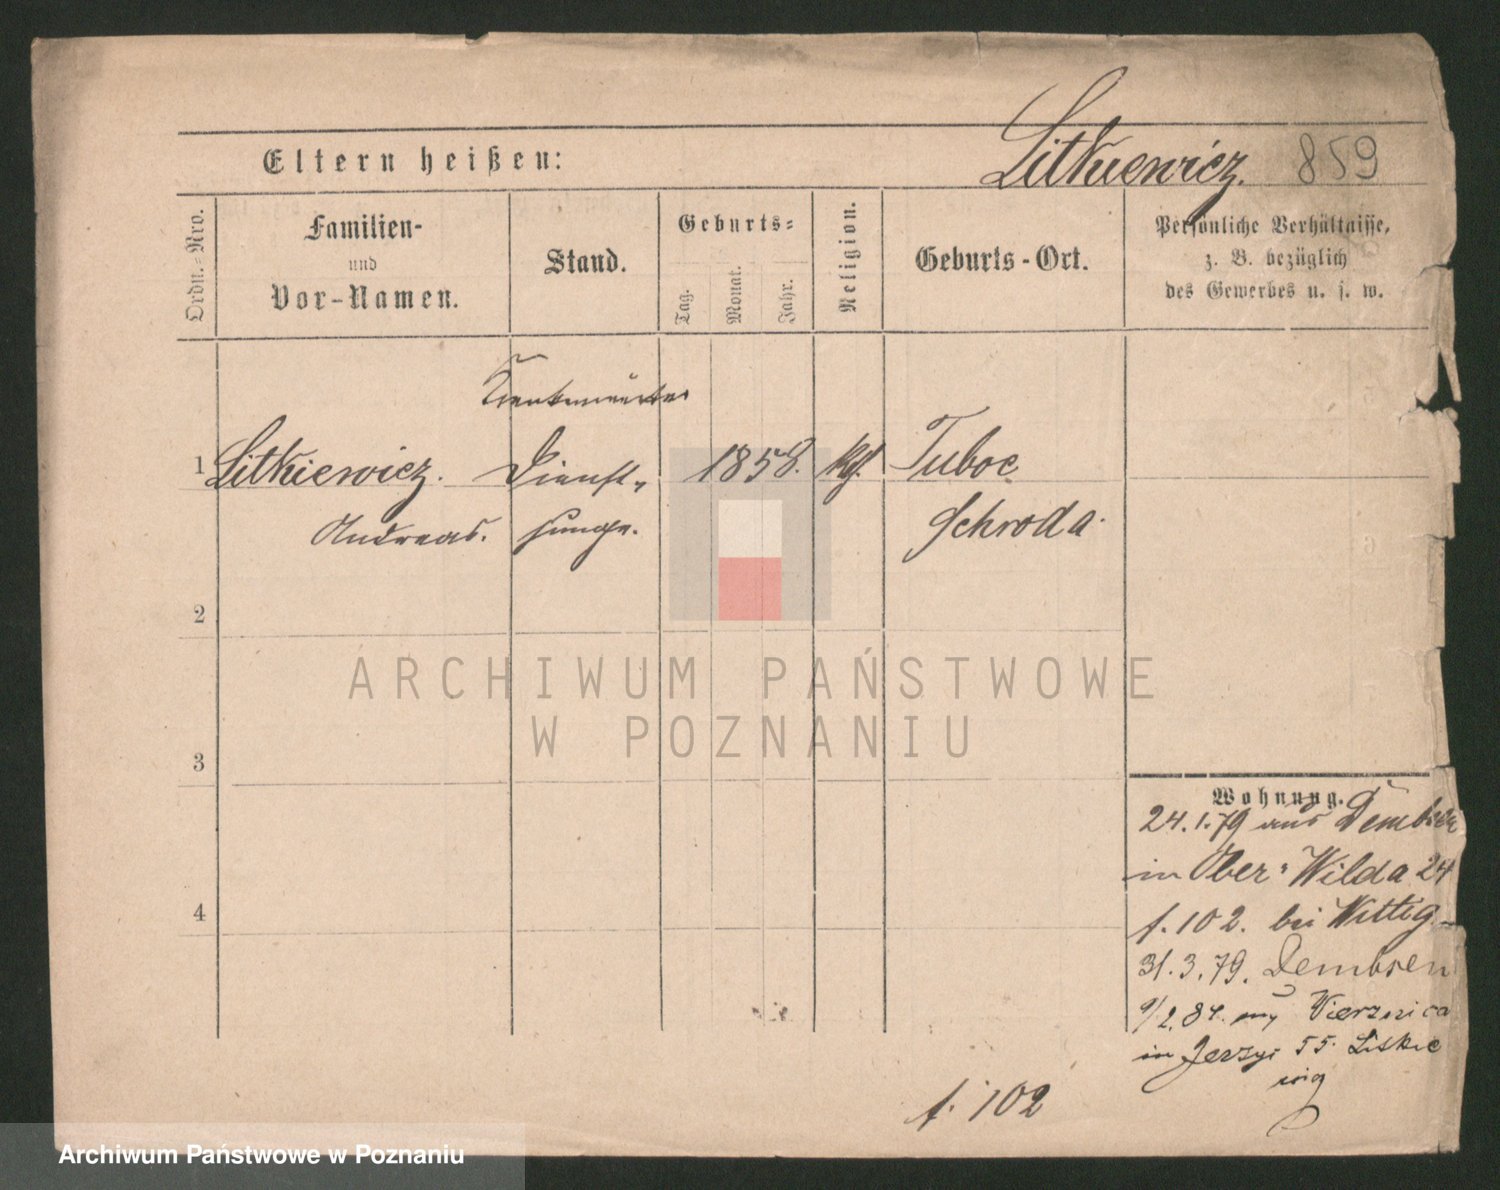 Litkiewicz. 859
Eltern heißen:
Ordn.-Nro.
Familien-
und
Vor-Namen.
Stand.
Geburts-
Tag.
Monat.
Jahr.
Religion.
Geburts-Ort.
Persönliche Verhältnisse,
z. B. bezüglich
des Gewerbes u. s. w.
1 Litkiewicz. Dienst- 1858. Tuboc
Andreas. junge. Schroda.
2
3
4
ARCHIWUM PAŃSTWOWE
W POZNANIU
Wohnung.
24.1.79 aus Dembsen
in Ober-Wilda 24
f. 102. bei Wittig
31.3.79. Dembsen
9/2.84. Wierznica
in Jerzyc 55. Litkie
wicz
f. 102
Archiwum Państwowe w Poznaniu